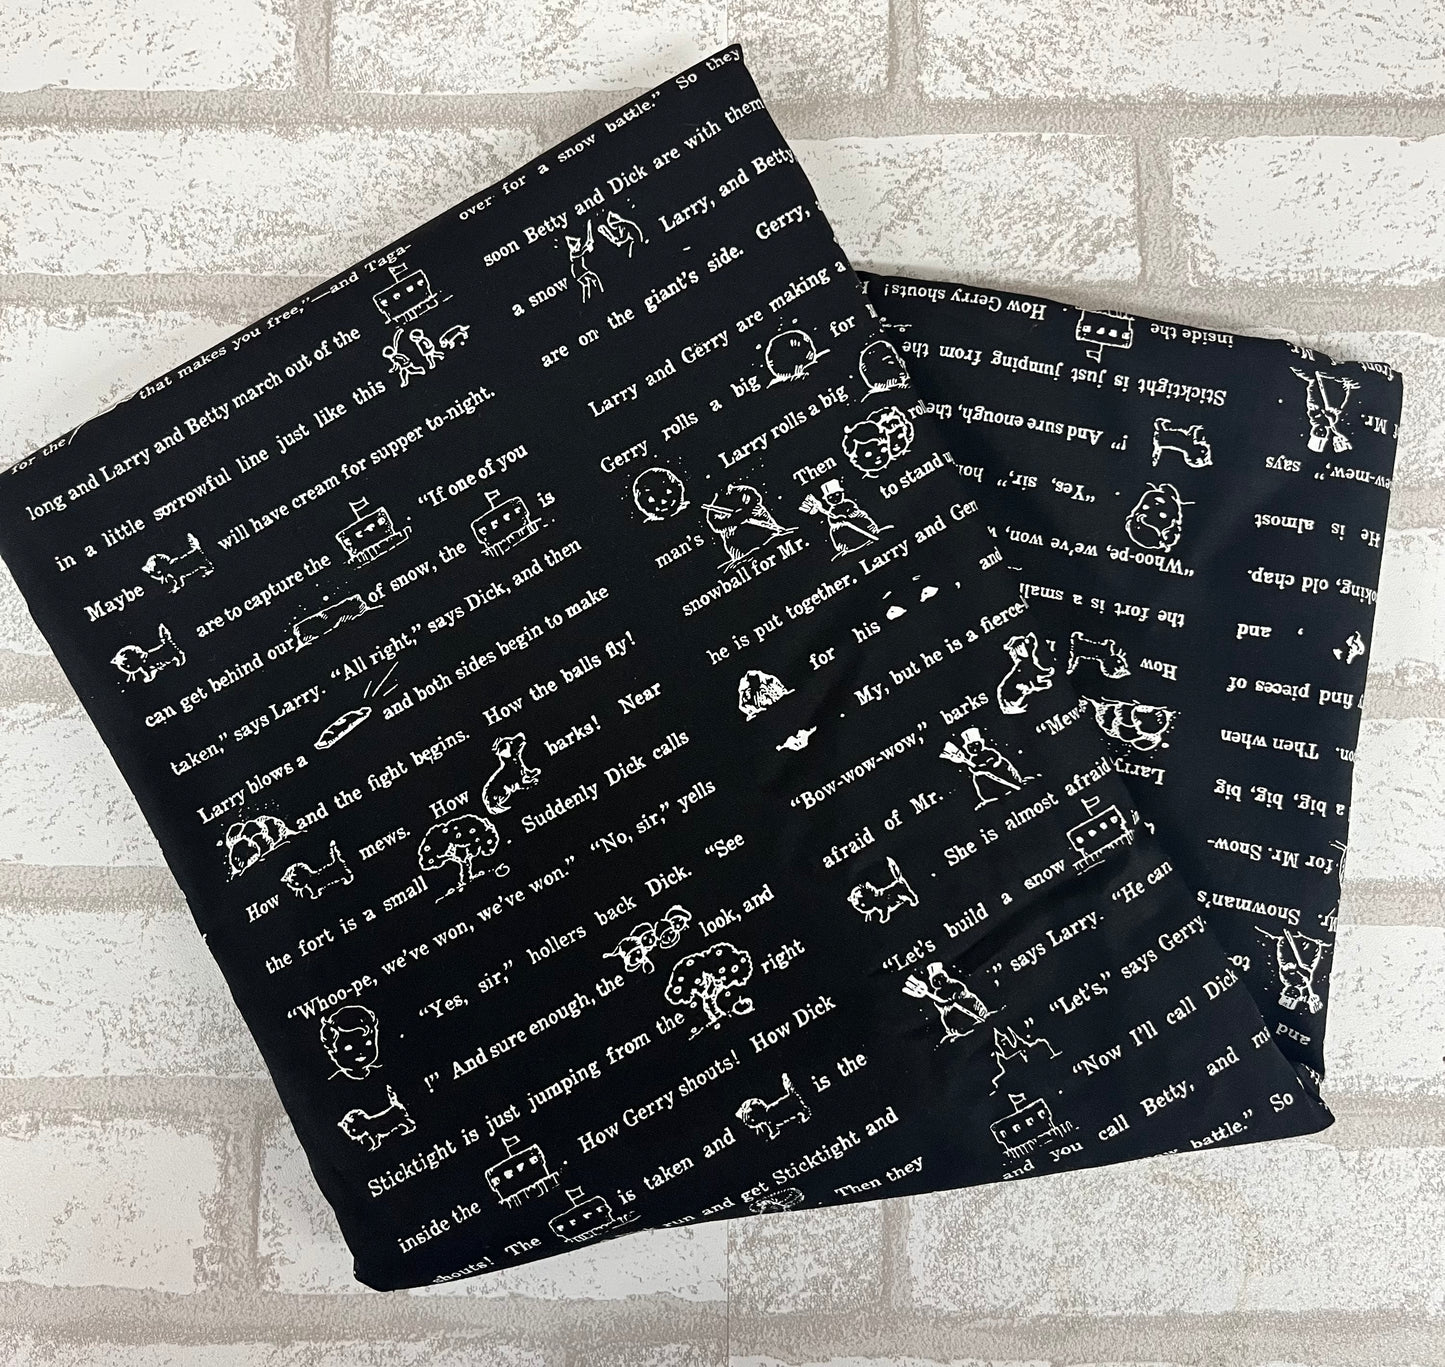 for the
that makes you free,"—and Taga-
long and Larry and Betty march out of the
in a little sorrowful line just like this
Maybe will have cream for supper to-night.
are to capture the . "If one of you
can get behind our of snow, the is
taken," says Larry. "All right," says Dick, and then
Larry blows a and both sides begin to make
and the fight begins. How the balls fly!
How mews. How barks! Near
the fort is a small . Suddenly Dick calls
"Whoo-pe, we've won, we've won." "No, sir," yells
. "Yes, sir," hollers back Dick. "See
!" And sure enough, the look, and
Sticktight is just jumping from the right
inside the . How Gerry shouts! How Dick
shouts! The is taken and is the
run and get Sticktight and
. Then they
over for a snow battle." So they
soon Betty and Dick are with them
a snow Larry, and Betty
are on the giant's side. Gerry,
Larry and Gerry are making a
Gerry rolls a big for
. Larry rolls a big
man's . Then
snowball for Mr. to stand
he is put together. Larry and
for his , and
. My, but he is a fierce
"Bow-wow-wow," barks
afraid of Mr. "Mew
. She is almost afraid
"Let's build a snow
," says Larry. "He can
" "Let's," says Gerry.
"Now I'll call Dick
and you call Betty, and
battle." So
How Gerry shouts!
inside the
Sticktight is just jumping from the
!" And sure enough, the
"Yes, sir,"
"Whoo-pe, we've won,
the fort is a small
How
Larry
Mr.
says
He is almost
old chap.
, and
find pieces of
Then when
a big, big, big
for Mr. Snow-
Snowman's
to
and